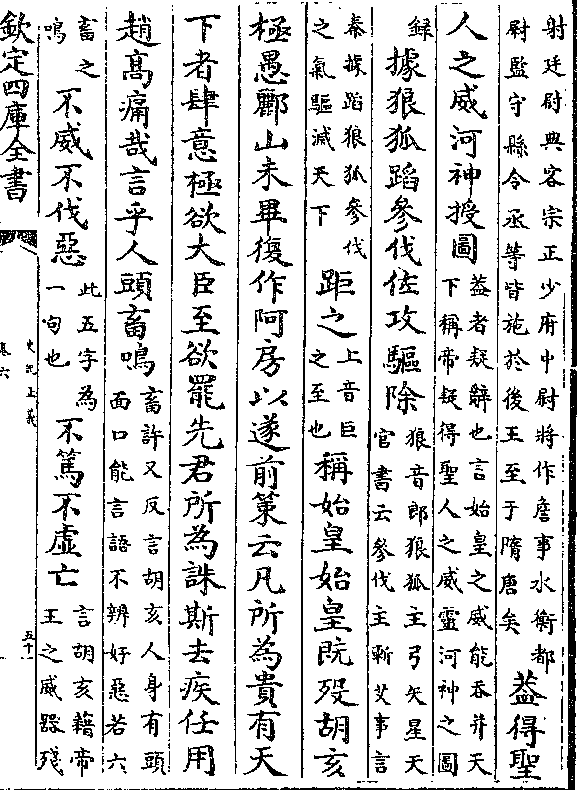 射廷尉典客宗正少府中尉將作詹事水衡都
尉監守縣令丞等皆施於後王至于隋唐矣
蓋得聖
人之威河神授圖
蓋者疑辭也言始皇之威能吞并天
下稱帝疑得聖人之威靈河神之圖
録
據狼狐蹈參伐佐攻驅除
狼音郎狼狐主弓矢星天
官書云參伐主斬艾事言
秦據蹈狼狐參伐
之氣驅滅天下
距之
上音巨
之至也
稱始皇始皇既歿胡亥
極愚酈山未畢復作阿房以遂前策云凡所為貴有天
下者肆意極欲大臣至欲罷先君所為誅斯去疾任用
趙高痛哉言乎人頭畜鳴
畜許又反言胡亥人身有頭
面口能言語不辨好惡若六
畜之
鳴
不威不伐惡
此五字為
一句也
不篤不虛亡
言胡亥藉帝
王之威器殘
欽定四庫全書
史記正義
卷六
五十